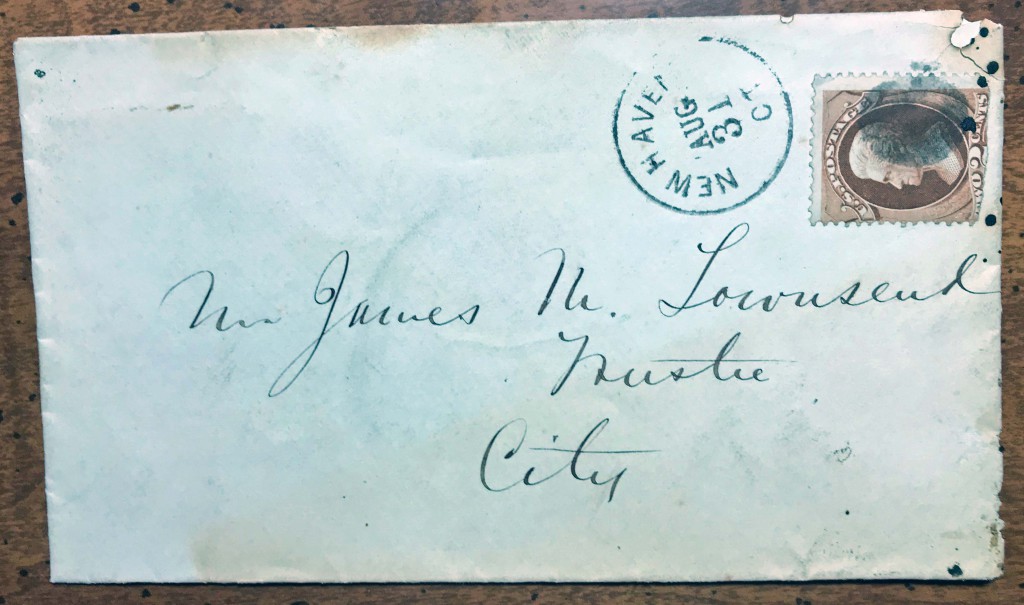 NEW HAVEN
AUG
31
CT
Mr James M. Townsend
Trustee
City